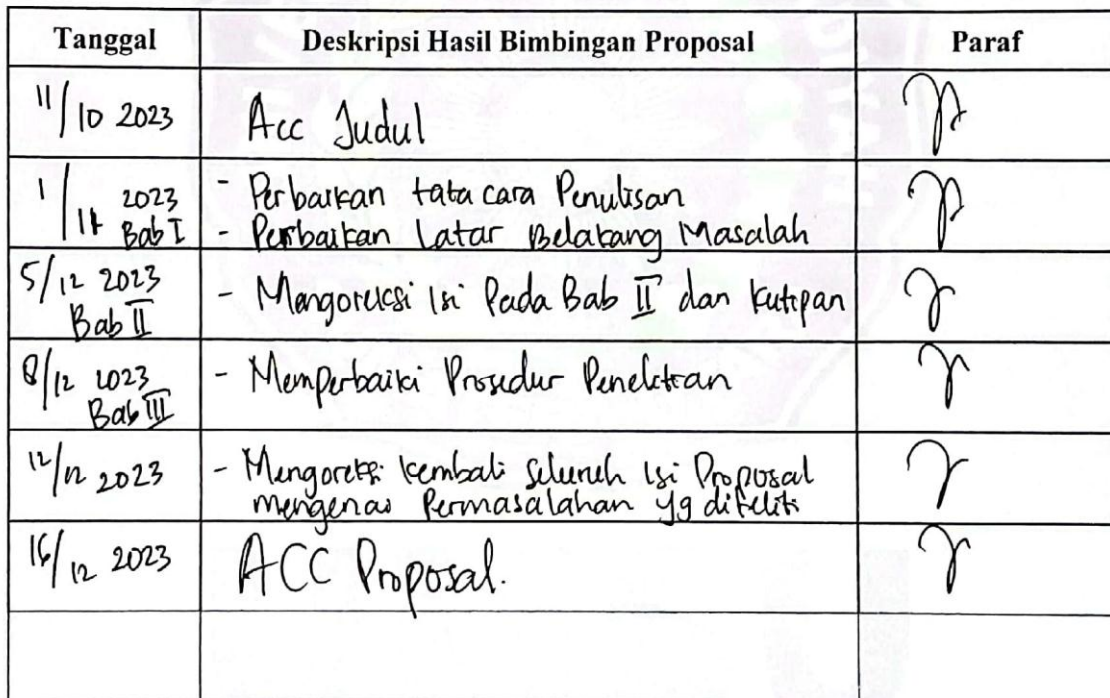 Tanggal Deskripsi Hasil Bimbingan Proposal Paraf
11/10 2023 Acc Judul
1/11 2023 - Perbaikan tata cara Penulisan
Bab I - Perbaikan Latar Belakang Masalah
5/12 2023 - Mengoreksi Isi Pada Bab II dan Kutipan
Bab II
8/12 2023 - Memperbaiki Prosedur Penelitian
Bab III
12/12 2023 - Mengoreksi kembali seluruh Isi Proposal
mengenai Permasalahan yg diteliti
16/12 2023 ACC Proposal.